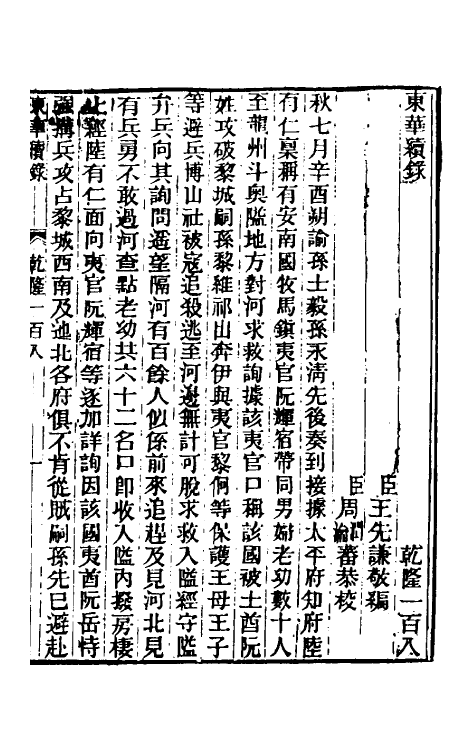 東華續錄
乾隆一百八
臣王先謙敬編
臣周潤蕃
瀹蕃恭校
秋七月辛酉朔諭孫士毅孫永清先後奏到接據太平府知府陸
有仁稟稱有安南國牧馬鎮夷官阮輝宿帶同男婦老幼數十人
至龍州斗奧隘地方對河求救詢據該夷官口稱該國被土酋阮
姓攻破黎城嗣孫黎維祁山奔伊與夷官黎侗等保護王母王子
等避兵博山社被寇追殺逃至河邊無計可脫求救入隘經守隘
弁兵向其詢問遙望隔河有百餘人似係前來追趕及見河北見
有兵勇不敢過河查點老幼共六十二名口卽收入隘內撥房棲
止經陸有仁面向夷官阮輝宿等逐加詳詢因該國夷酋阮岳恃
強搆兵攻占黎城西南及迤北各府俱不肯從賊嗣孫先已避赴
東華續錄 乾隆一百八 一